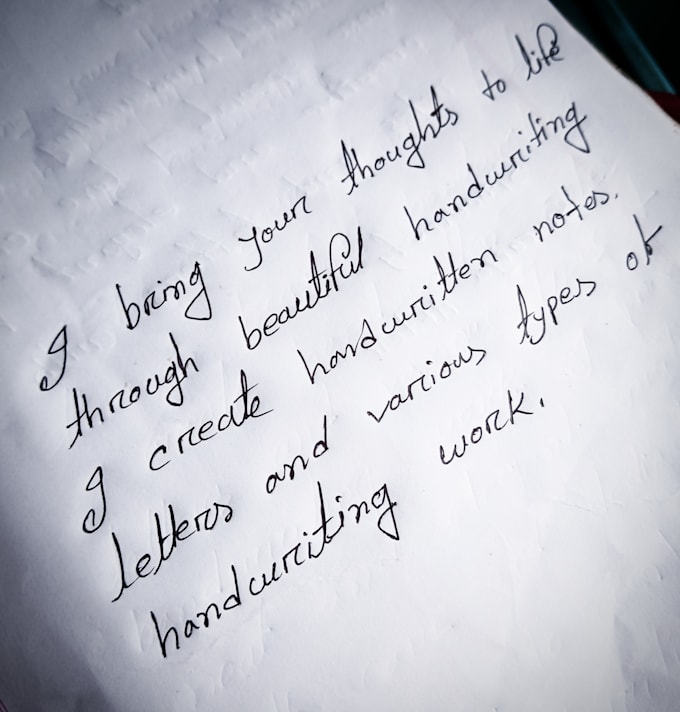 I bring your thoughts to life
through beautiful handwriting
I create handwritten notes.
letters and various types of
handwriting work.